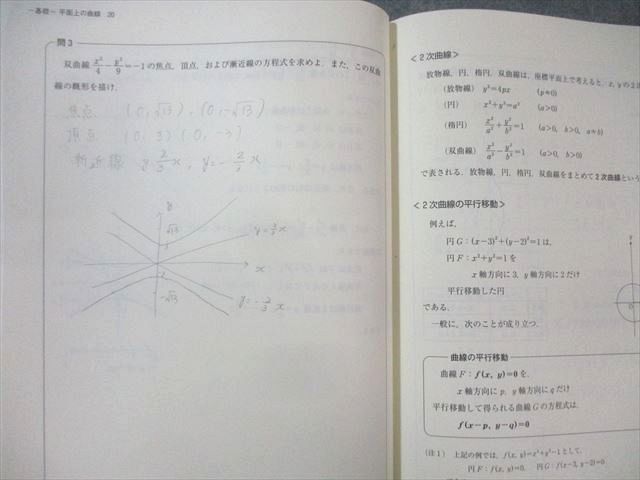 －基礎－ 平面上の曲線 20
問3
双曲線 x²/4 − y²/9 = −1 の焦点，頂点，および漸近線の方程式を求めよ．また，この双曲
線の概形を描け．
焦点 (0, √13), (0, −√13)
頂点 (0, 3) (0, −3)
漸近線 y=2/3 x, y=−2/3 x
y
√13
y=2/3 x
x
−√13
y=−2/3 x
＜2次曲線＞
放物線，円，楕円，双曲線は，座標平面上で考えると，x, yの2次
(放物線) y²=4px (p≠0)
(円) x²+y²=a² (a>0)
(楕円) x²/a²+y²/b²=1 (a>0, b>0, a≠b)
(双曲線) x²/a²−y²/b²=1 (a>0, b>0)
で表される．放物線，円，楕円，双曲線をまとめて2次曲線という
＜2次曲線の平行移動＞
例えば，
円G：(x−3)²+(y−2)²=1は，
円F：x²+y²=1を
x軸方向に3，y軸方向に2だけ
平行移動した円
である．
一般に，次のことが成り立つ．
曲線の平行移動
曲線F：f(x, y)=0を，
x軸方向にp，y軸方向にqだけ
平行移動して得られる曲線Gの方程式は，
f(x−p, y−q)=0
(注1) 上記の例では，f(x, y)=x²+y²−1として，
円F：f(x, y)=0， 円G：f(x−3, y−2)=0